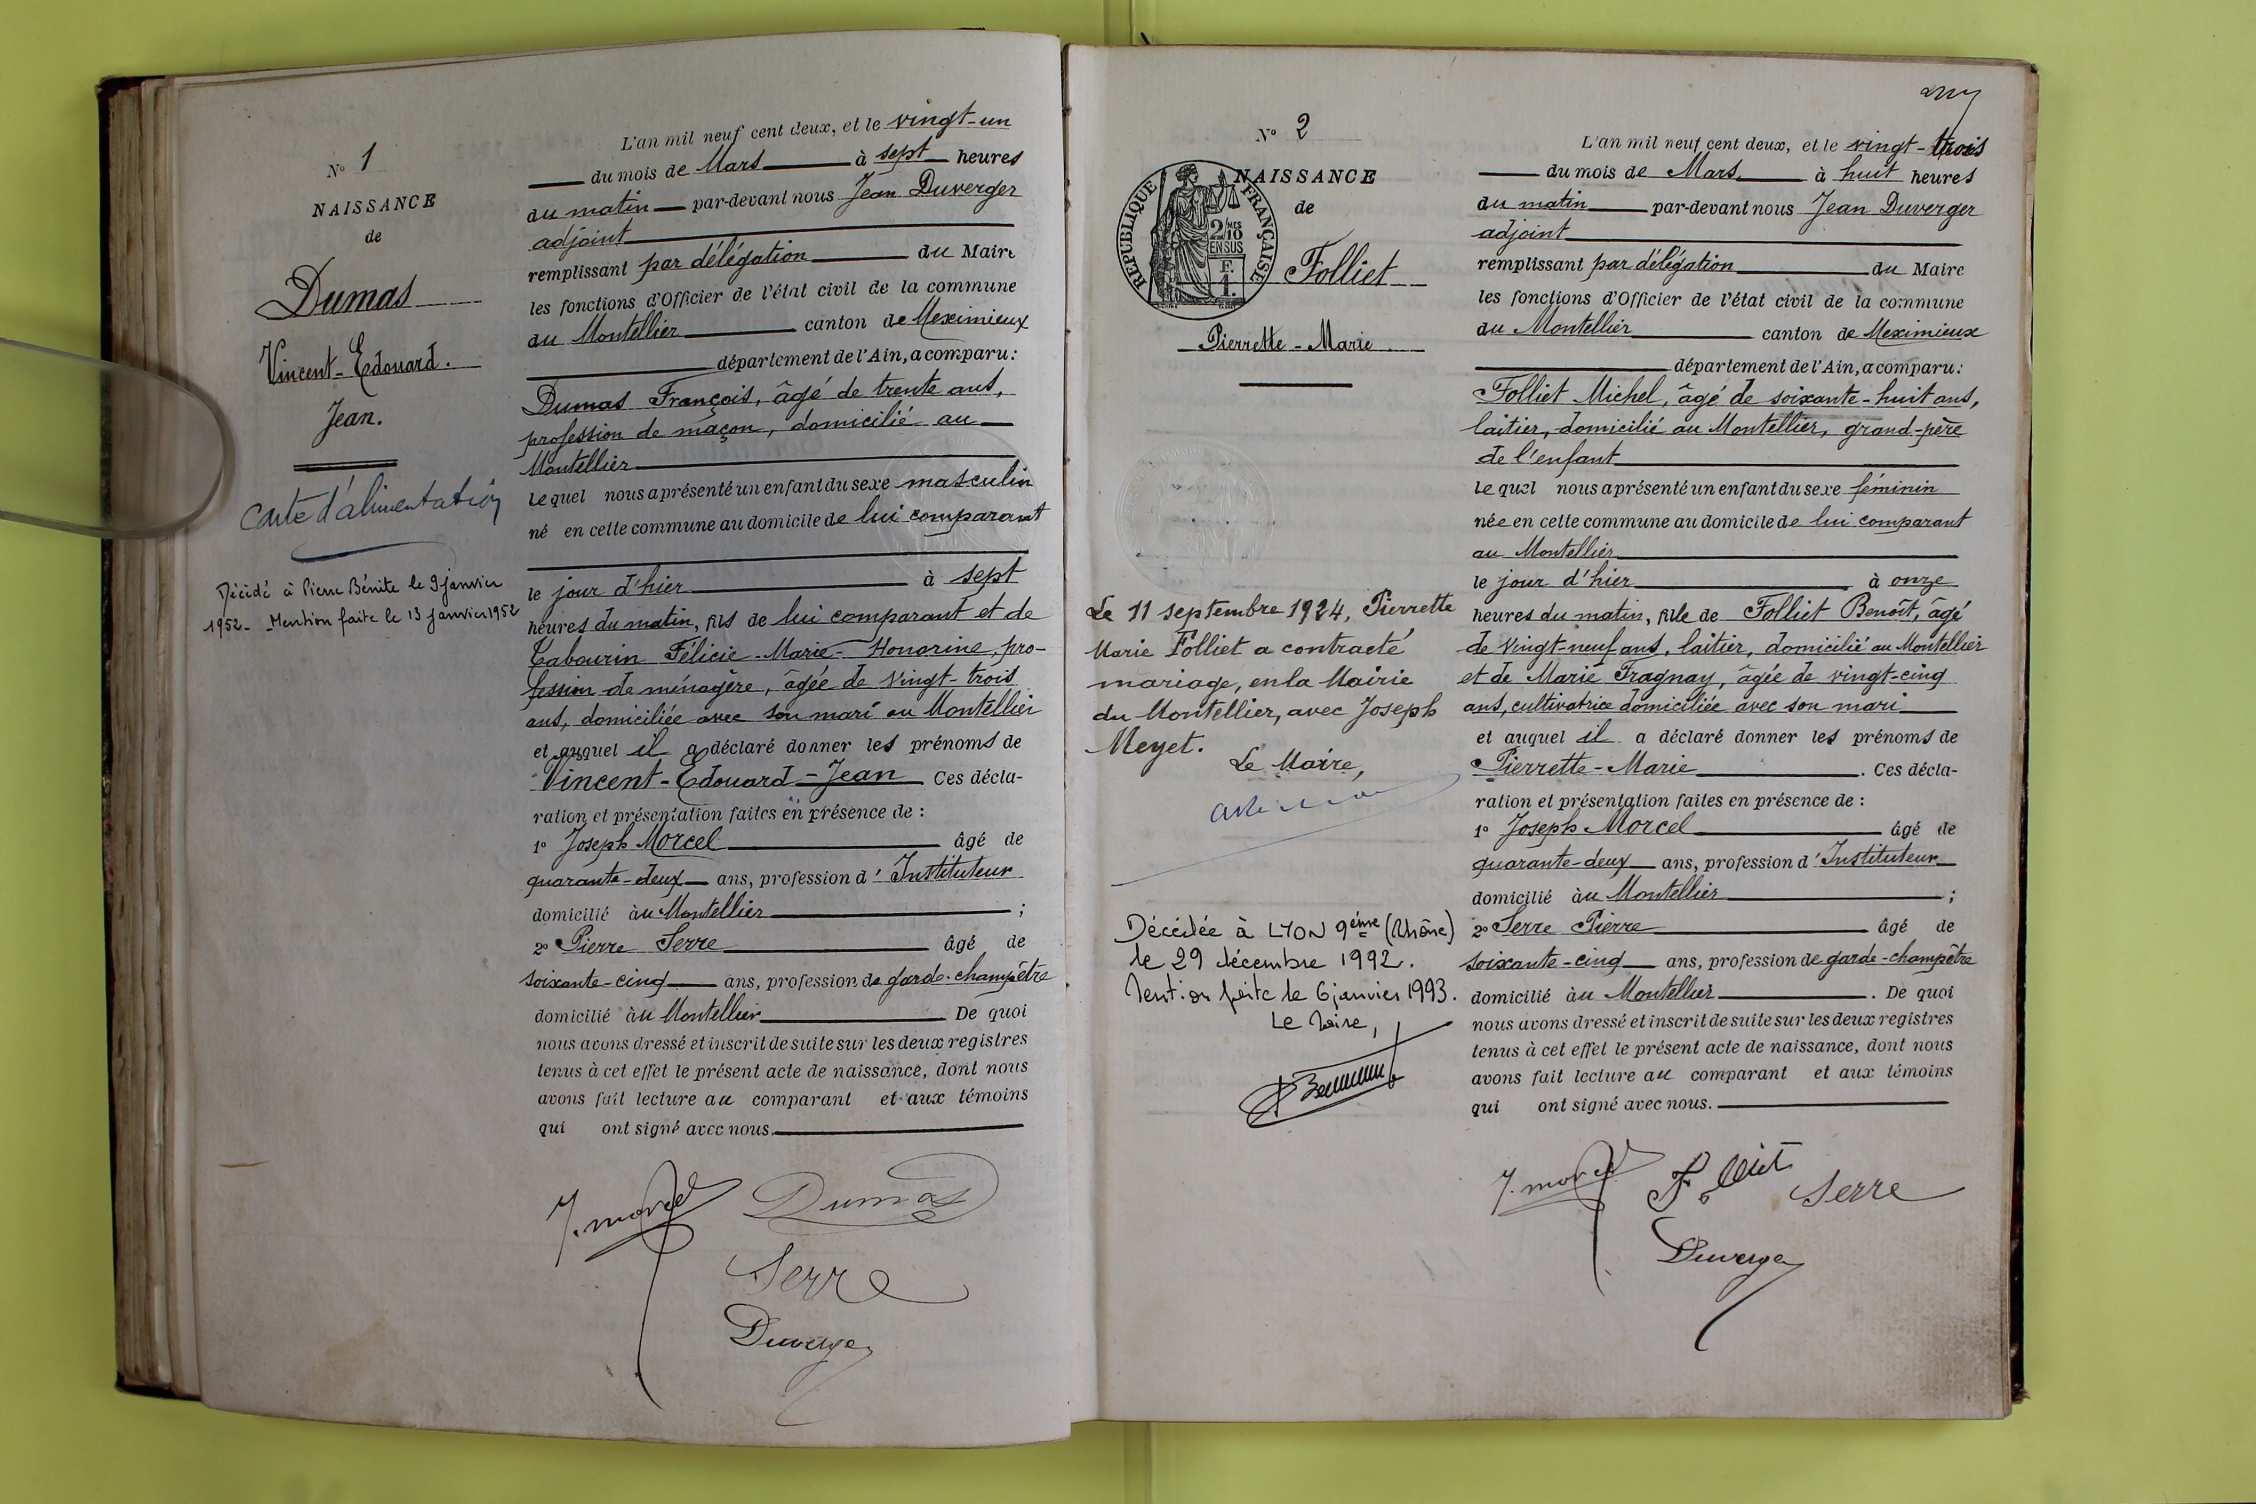 N° 1
NAISSANCE
de
Dumas
Vincent-Edouard.
Jean.
Carte d'alimentation
Décédé à Pierre Bénite le 9 janvier
1952 - Mention faite le 13 janvier 1952
L'an mil neuf cent deux, et le vingt-un
du mois de Mars à sept heures
du matin par-devant nous Jean Duverger
adjoint
remplissant par délégation du Maire
les fonctions d'Officier de l'état civil de la commune
du Montellier canton de Meximieux
département de l'Ain, a comparu :
Dumas François, âgé de trente ans,
profession de maçon, domicilié au
Montellier
lequel nous a présenté un enfant du sexe masculin
né en cette commune au domicile de lui comparant
le jour d'hier à sept
heures du matin, fils de lui comparant et de
Cabourin Félicie-Marie-Honorine, pro-
fession de ménagère, âgée de vingt-trois
ans, domiciliée avec son mari au Montellier
et auquel il a déclaré donner les prénoms de
Vincent-Edouard-Jean Ces décla-
ration et présentation faites en présence de :
1° Joseph Morcel âgé de
quarante-deux ans, profession d'Instituteur
domicilié au Montellier ;
2° Pierre Serre âgé de
soixante-cinq ans, profession de garde-champêtre
domicilié au Montellier De quoi
nous avons dressé et inscrit de suite sur les deux registres
tenus à cet effet le présent acte de naissance, dont nous
avons fait lecture au comparant et aux témoins
qui ont signé avec nous.
J. Morcel Dumas
Serre
Duverger
N° 2
NAISSANCE
de
RÉPUBLIQUE FRANÇAISE
2/10 MES
EN SUS
F.
1.
Folliet
Pierrette-Marie
Le 11 septembre 1924, Pierrette
Marie Folliet a contracté
mariage, en la Mairie
du Montellier, avec Joseph
Meyet.
Le Maire,
Décédée à LYON 9ème (Rhône)
le 29 décembre 1992.
Mention faite le 6 janvier 1993.
Le Maire,
L'an mil neuf cent deux, et le vingt-trois
du mois de Mars à huit heures
du matin par-devant nous Jean Duverger
adjoint
remplissant par délégation du Maire
les fonctions d'Officier de l'état civil de la commune
du Montellier canton de Meximieux
département de l'Ain, a comparu :
Folliet Michel, âgé de soixante-huit ans,
laitier, domicilié au Montellier, grand-père
de l'enfant
lequel nous a présenté un enfant du sexe féminin
née en cette commune au domicile de lui comparant
au Montellier
le jour d'hier à onze
heures du matin, fille de Folliet Benoît, âgé
de vingt-neuf ans, laitier, domicilié au Montellier
et de Marie Fragnay, âgée de vingt-cinq
ans, cultivatrice domiciliée avec son mari
et auquel il a déclaré donner les prénoms de
Pierrette-Marie . Ces décla-
ration et présentation faites en présence de :
1° Joseph Morcel âgé de
quarante-deux ans, profession d'Instituteur
domicilié au Montellier ;
2° Serre Pierre âgé de
soixante-cinq ans, profession de garde-champêtre
domicilié au Montellier . De quoi
nous avons dressé et inscrit de suite sur les deux registres
tenus à cet effet le présent acte de naissance, dont nous
avons fait lecture au comparant et aux témoins
qui ont signé avec nous.
J. Morcel Folliet Serre
Duverger